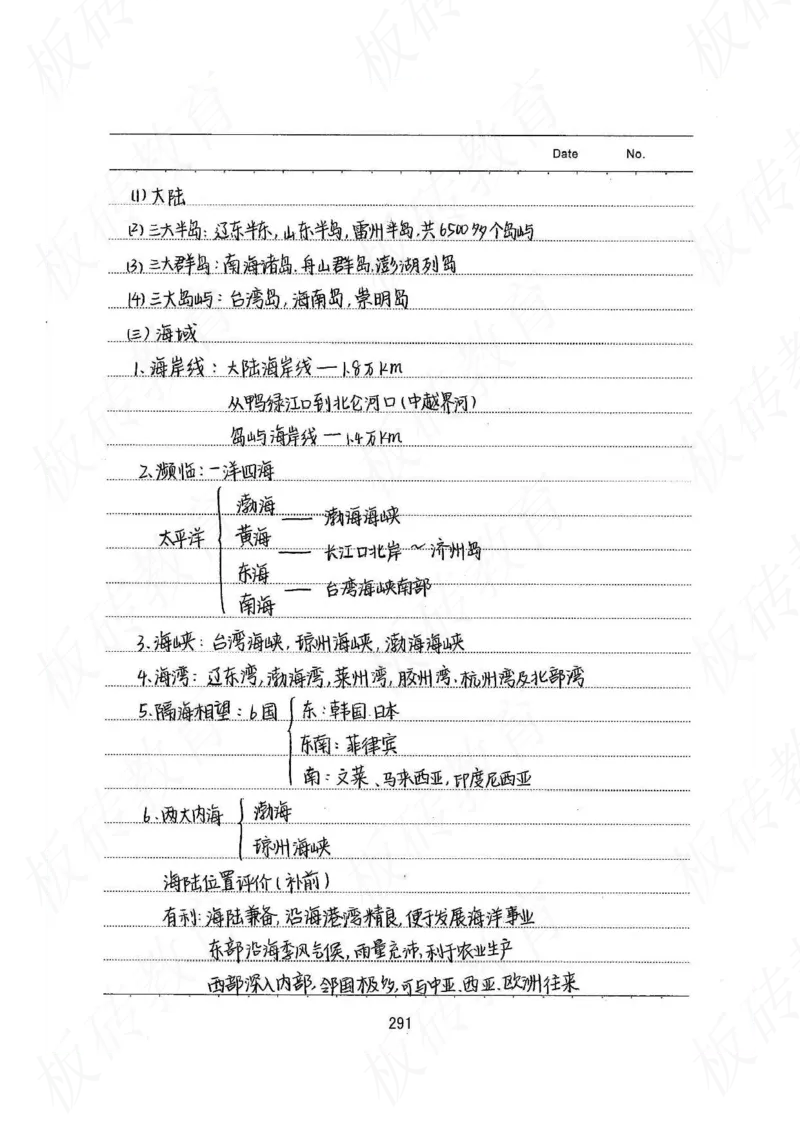 Date No.
(1) 大陆
(2) 三大半岛：辽东半东，山东半岛，雷州半岛.共6500多个岛屿
(3) 三大群岛：南海诸岛.舟山群岛.澎湖列岛
(4) 三大岛屿：台湾岛，海南岛，崇明岛
(三) 海域
1. 海岸线：大陆海岸线 — 1.8万km
从鸭绿江口到北仑河口（中越界河）
岛屿海岸线 — 1.4万km
2. 濒临：一洋四海
太平洋
渤海
— 渤海海峡
黄海
— 长江口北岸 ~ 济州岛
东海
— 台湾海峡南部
南海
3. 海峡：台湾海峡，琼州海峡，渤海海峡
4. 海湾：辽东湾，渤海湾，莱州湾，胶州湾.杭州湾及北部湾
5. 隔海相望：6国 东：韩国.日本
东南：菲律宾
南：文莱、马来西亚，印度尼西亚
6. 两大内海 渤海
琼州海峡
海陆位置评价（补前）
有利：海陆兼备，沿海港湾精良，便于发展海洋事业
东部沿海季风气候，雨量充沛，利于农业生产
西部深入内部.邻国极多，可与中亚.西亚.欧洲往来
291
板砖教育